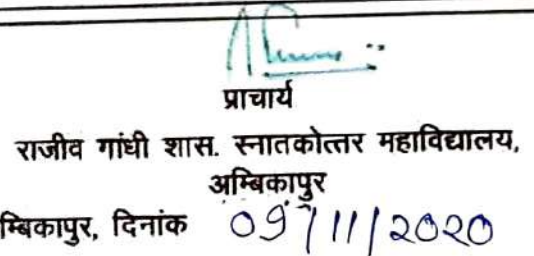 प्राचार्य
राजीव गांधी शास. स्नातकोत्तर महाविद्यालय,
अम्बिकापुर
म्बिकापुर, दिनांक 09/11/2020